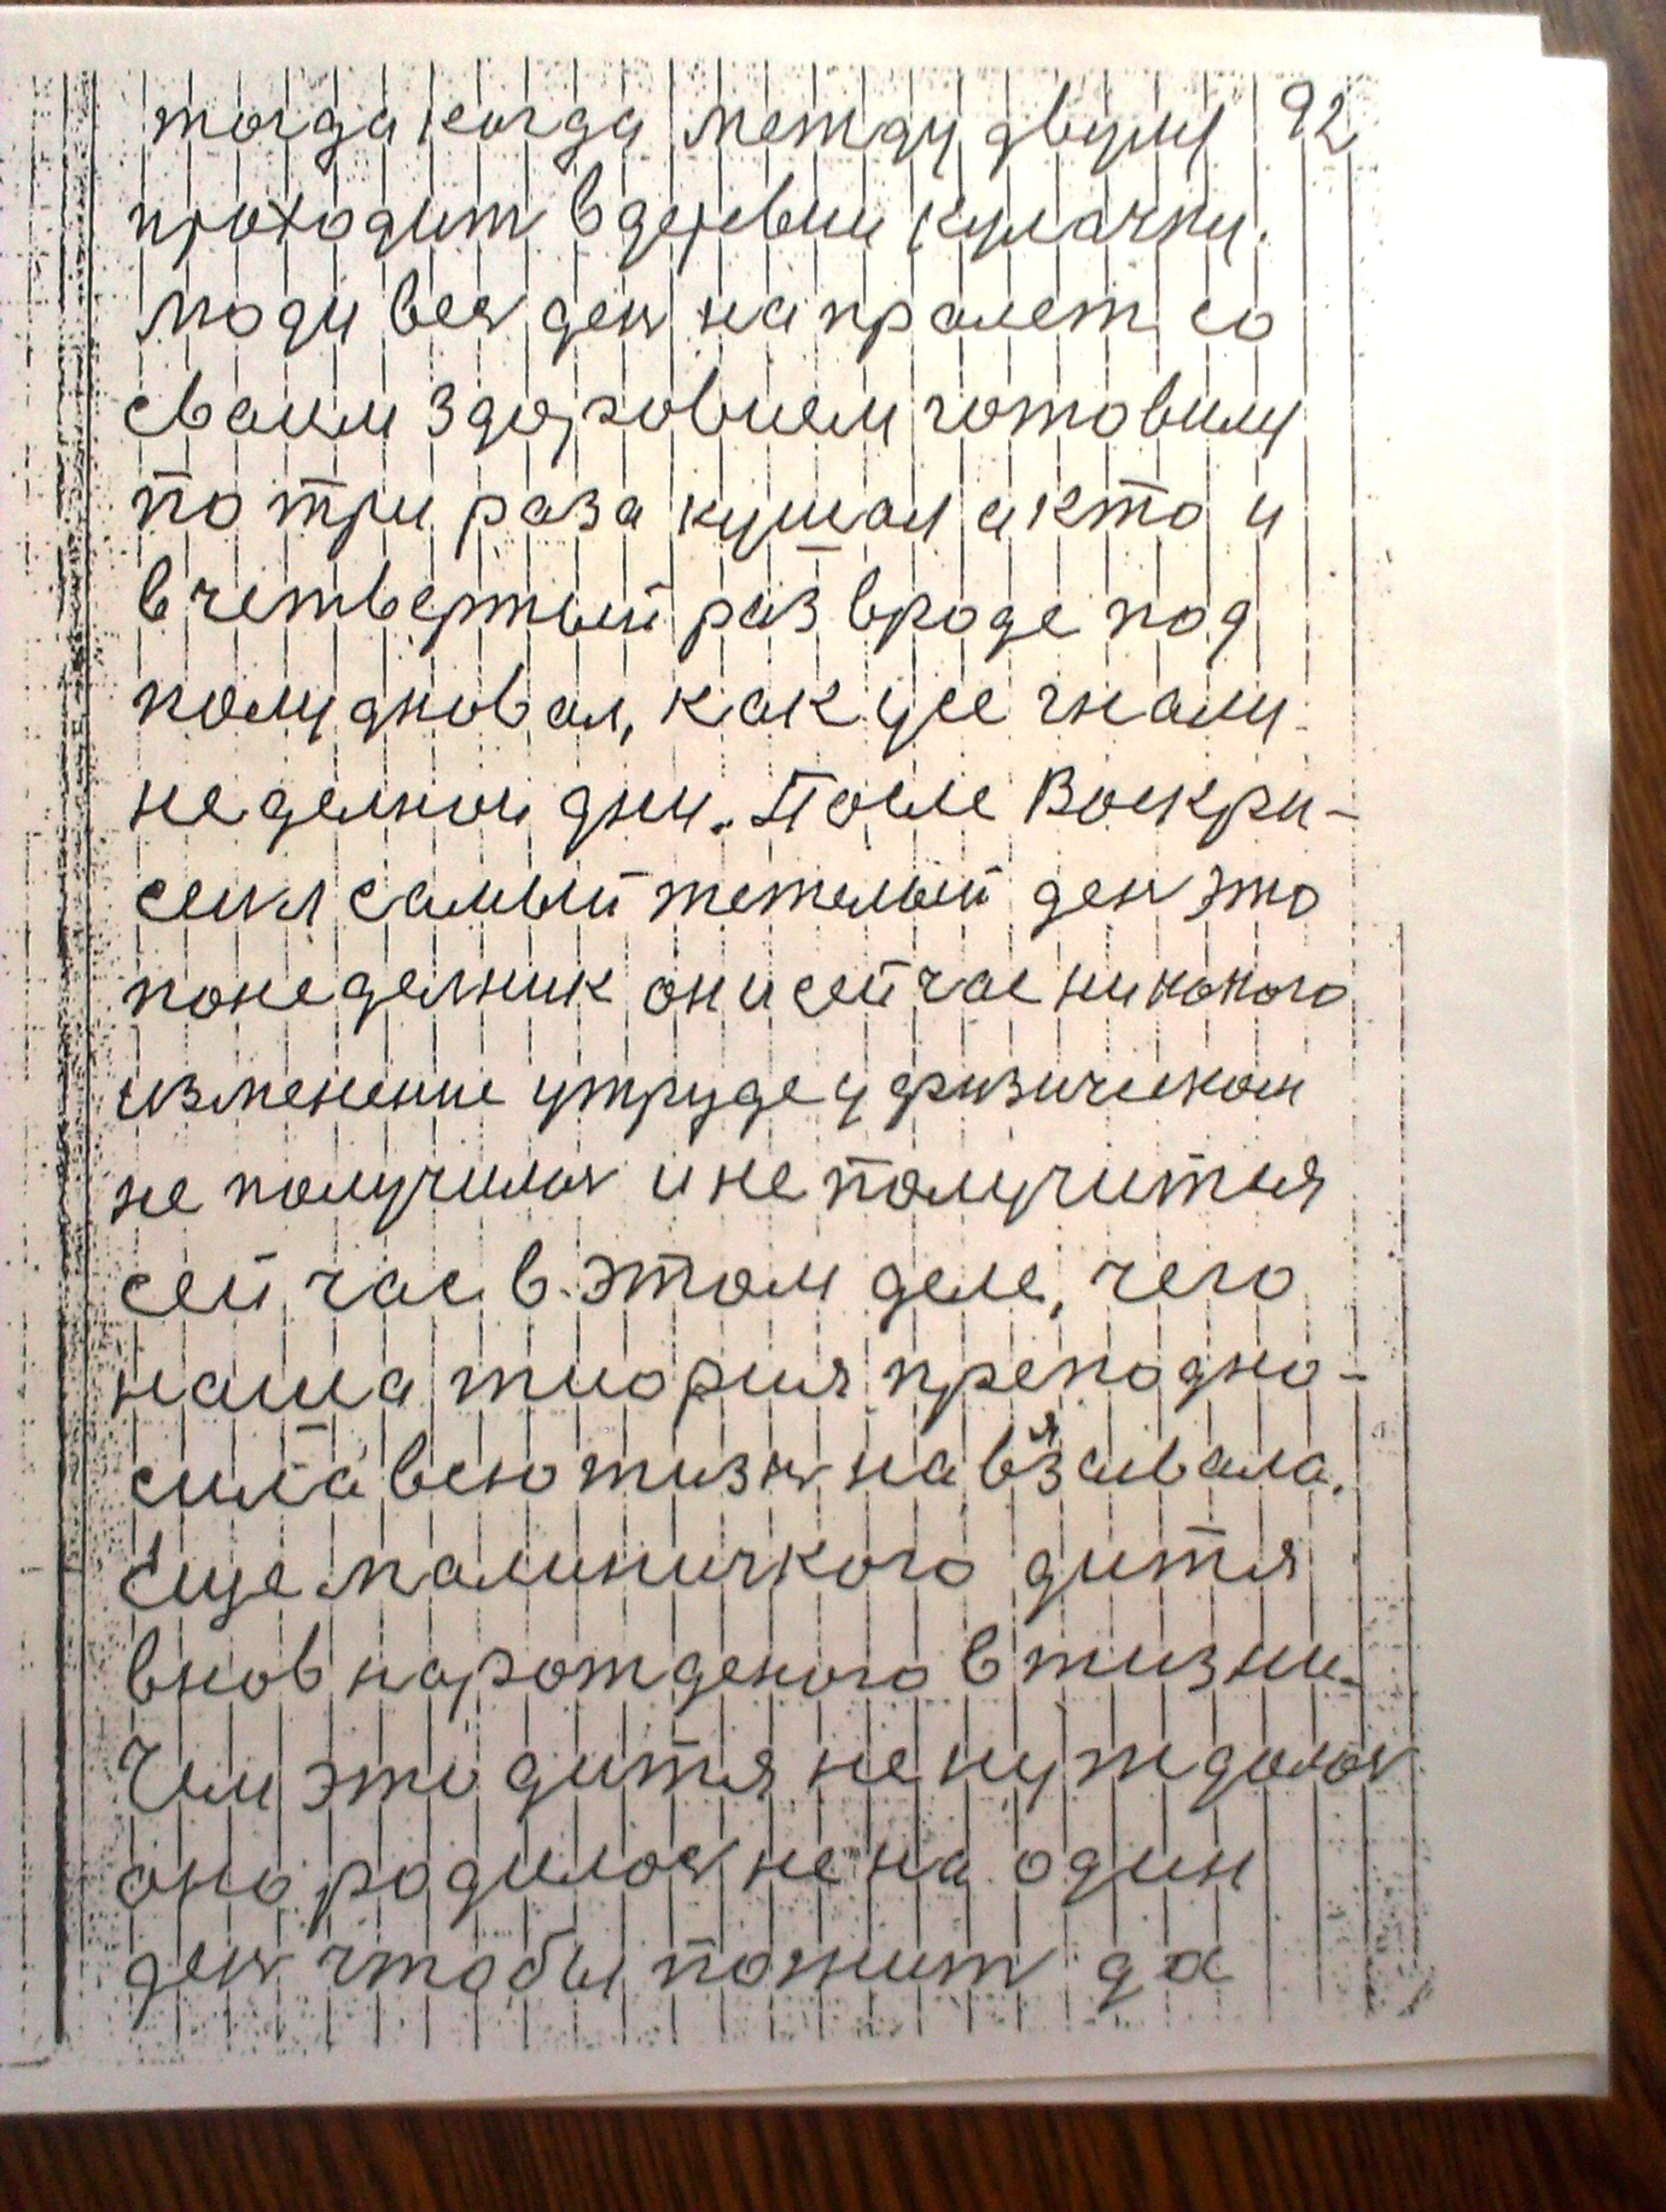 тогда когда между двумя 92
проходит в деревни кулачки.
люди весь день на пралет со
сваим здоровием готовили
по три раза кушал а кто и
в четвертый раз вроде под
полудновал, как усе гнали
неделной дни. После Воскри-
сения самый тежелый день это
понеделник они сейчас никокого
изменение утруде у физическом
не получилось и не получиться
сейчас в этом деле, чего
наша тиория преподно-
сила всю жизнь навязывала.
Еще малиничкого дитя
внов нарожденого в жизни.
Чем это дитя не нуждалось
оно родилось не на один
день чтобы пожить да